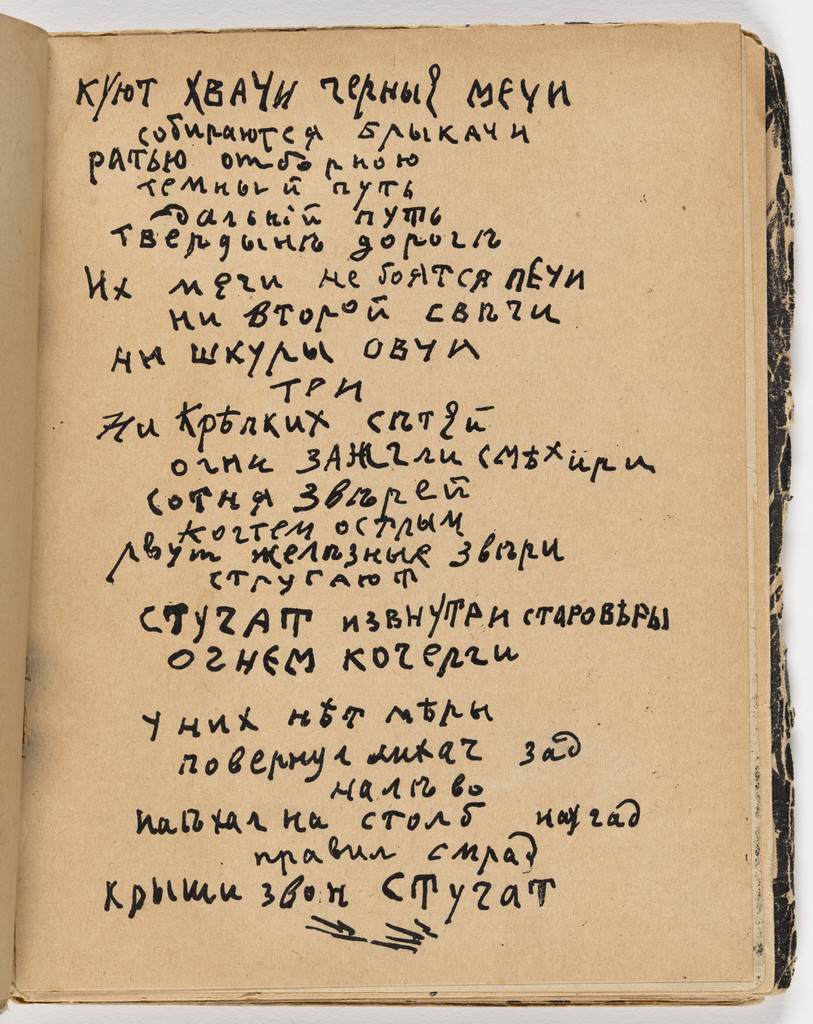 куют хвачи черные мечи
собираются брыкачи
ратью отборною
темный путь
дальнiй путь
твердынѣ дорогѣ
Их мечи не боятся печи
ни второй свѣчи
ни шкуры овчи
три
Ни крѣпких сѣтей
огни зажгли смѣхири
сотня звѣрей
когтем острым
рвут желѣзные звѣри
стругают
стучат извнутри старовѣры
огнем кочерги
у них нѣт мѣры
повернул лихач зад
налѣво
наѣхал на столб
правил смрад
крыши звон стучат